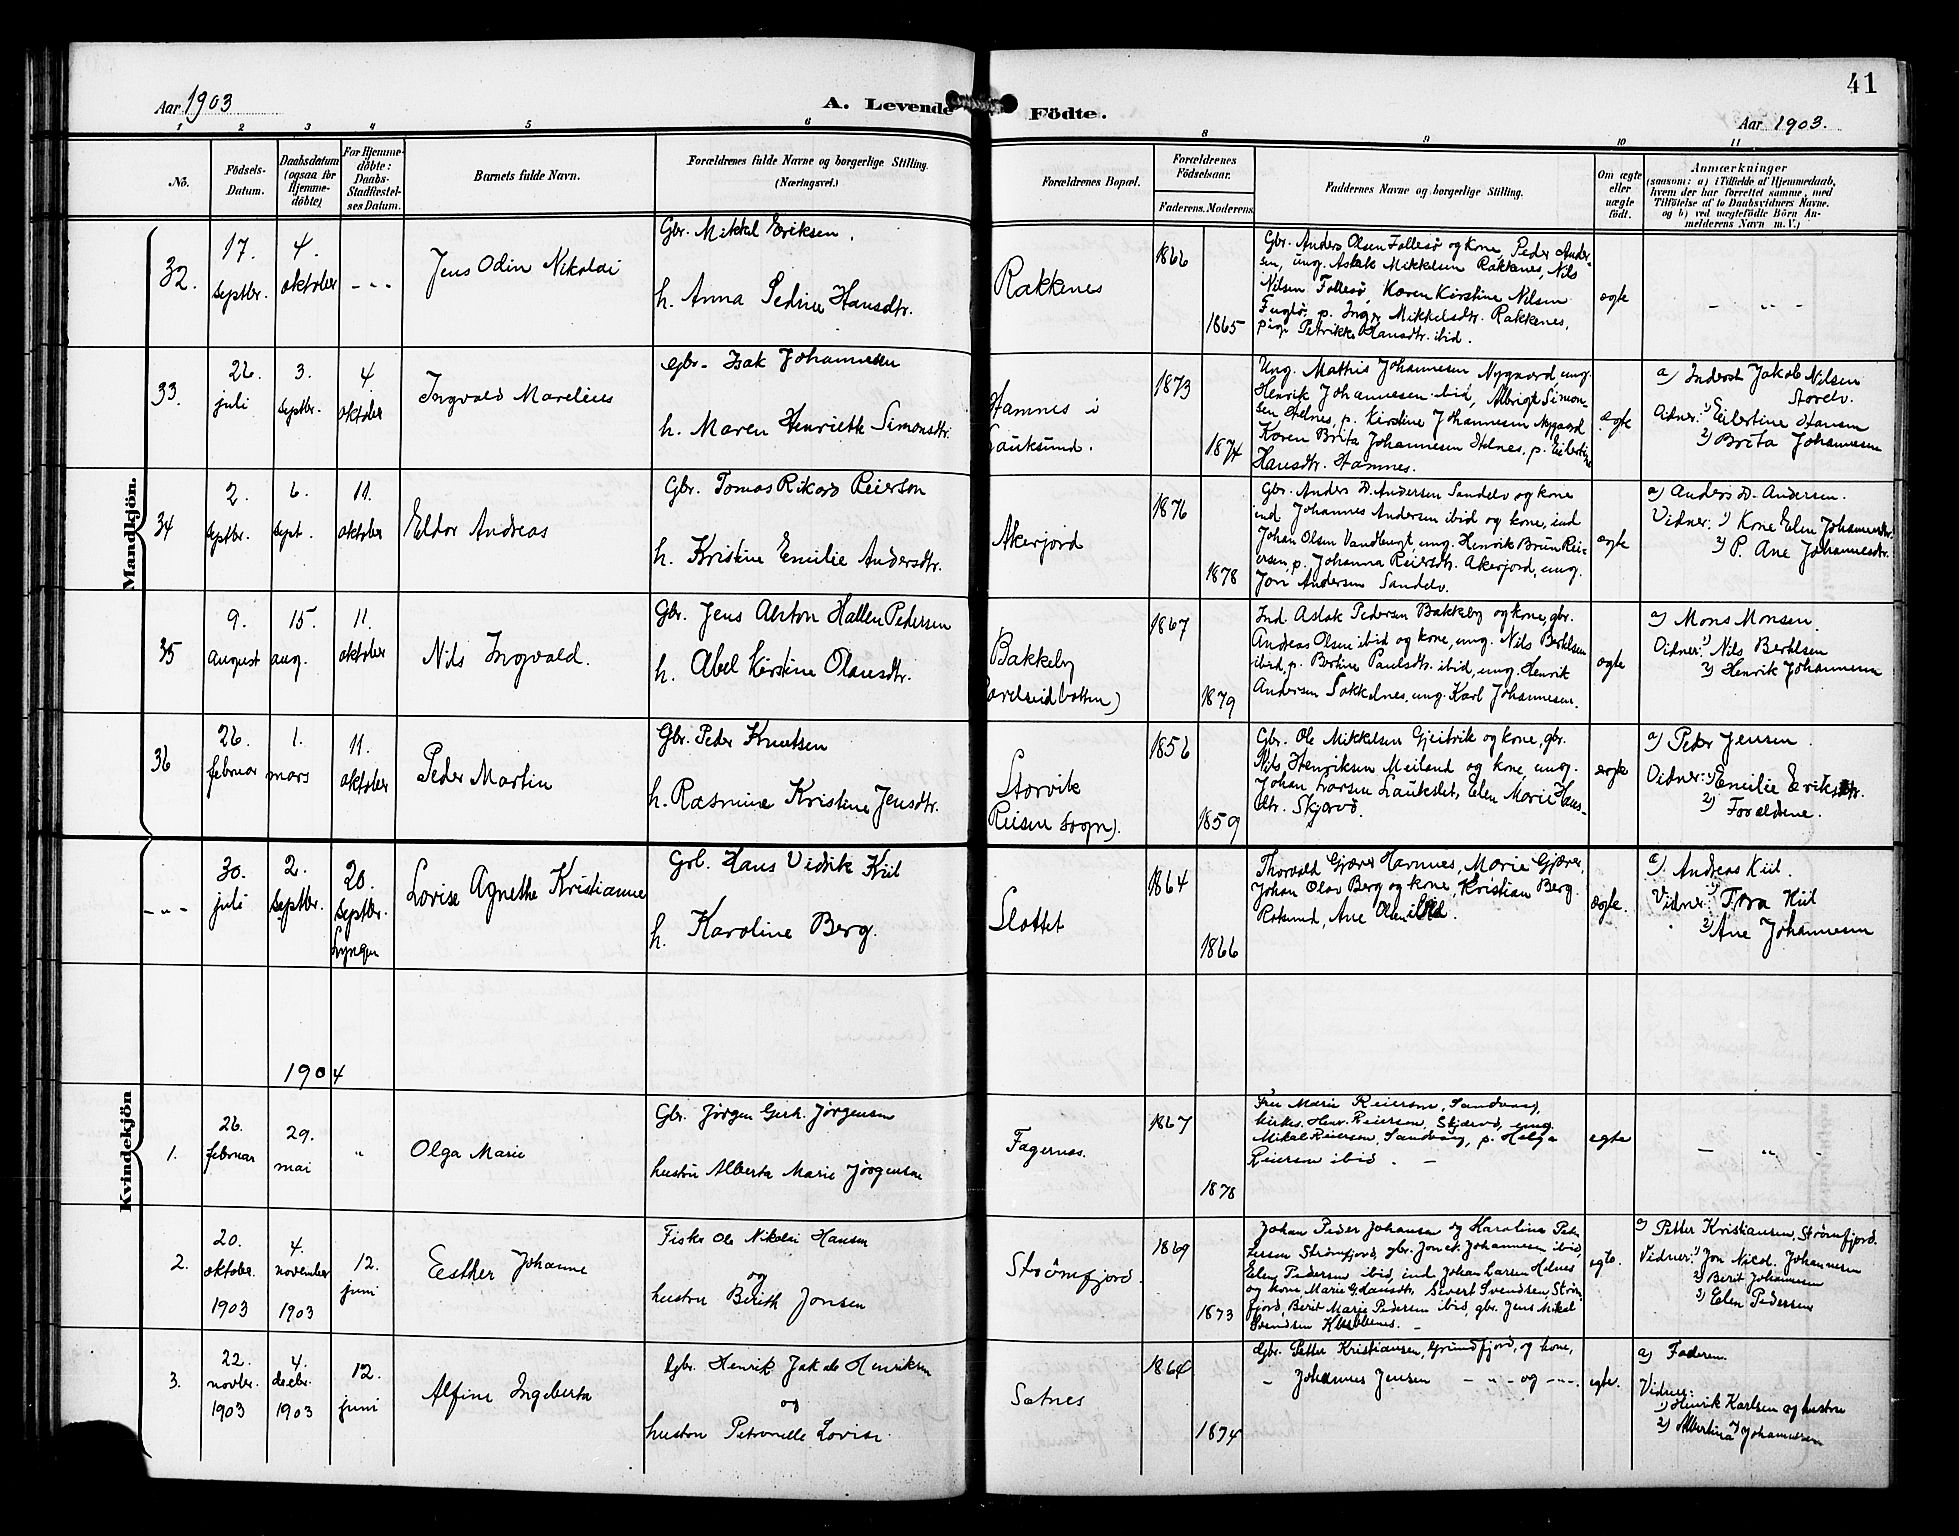 41
Aar 1903
A. Levende Födte.
Aar 1903.
1 2 3 4 5 6 8 9 10 11
No.
Födsels-Datum.
Daabsdatum (ogsaa for Hjemme-döbte)
For Hjemme-döbte: Daabs-Stadfæstel-ses Datum.
Barnets fulde Navn.
Forældrenes fulde Navne og borgerlige Stilling.
(Næringsvei.)
Forældrenes Bopæl.
Forældrenes Födselsaar.
Faderens. Moderens.
Faddernes Navne og borgerlige Stilling.
Om ægte eller uægte födt.
Anmærkninger
(saasom: a) i Tilfælde af Hjemmedaab,
hvem der har forrettet samme, med
Tilföielse af to Daabsvidners Navne.
og b) ved uægtefödte Börn An-
melderens Navn m. V.)
Mandkjön.
32.
17. septbr.
4. oktober
- - -
Jens Odin Nikolai
Gbr. Mikkel Eriksen.
h. Anna Pedrine Hansdtr.
Rakkenes
1866
1865
Gbr. Anders Olsen Follesø og kone, Peder Ander-
sen, ung. Aslak Mikkelsen Rakkenes, Nils
Nilsen Follesø, Karen Kirstine Nilsen
Fuglø, p. Inger Mikkelsdtr. Rakkenes,
pige Petrikke Hansdtr. ibid.
ægte
- " -
33.
26. juli
3. septbr.
4 oktober
Ingvald Marelius
gbr. Isak Johannesen
h. Maren Henriette Simonsdtr.
Hamnes i
Lauksund.
1873
1874
Ung. Mathis Johannesen Nygaard, ung.
Henrik Johannesen ibid, Albrigt Simon-
sen Helnes, p. Kirstine Johannesen Nygaard
Karen Brita Johannesen Helnes, p. Eilertine
Hansdtr. Hamnes.
ægte
a) Inderst Jakob Nilsen
Storelv.
Vidner: 1) Eilertine Hansen
2) Brita Johannesen
34
2. septbr.
6. sept.
11. oktober
Eldor Andreas
Gbr. Tomas Rikard Reierson
h. Kristine Emilie Andersdtr.
Akerfjord
1876
1878
Gbr. Anders D. Andersen Sandelv og kone
ind. Johannes Andersen ibid og kone, ind
Johan Olsen Vandbugt, ung. Henrik Brun Rei-
ersen, p. Johanna Reiersdtr. Akerfjord, ung.
Jon Andersen Sandelv.
ægte
a) Anders D. Andersen.
Vidner: 1) Kone Elen Johannesdtr.
2) P. Ane Johannesdtr.
35
9. august
15. aug.
11. oktober
Nils Ingvald.
Gbr. Jens Alston Hallen Pedersen
h. Abel Kirstine Olausdtr.
Bakkeby
1867
1879
Ind. Aslak Pedersen Bakkeby og kone, gbr.
Andreas Olsen ibid og kone, ung. Nils Bertelsen
ibid, p. Bertine Paulsdtr. ibid, ung. Henrik
Andersen Sokkelnes, ung. Karl Johannesen.
ægte
a) Mons Monsen.
Vidner: 1) Nils Bertelsen
2) Henrik Johannesen
36
26. februar
1. mars
11. oktober
Peder Martin
Gbr. Peder Knutsen
h. Rasmine Kristine Jensdtr.
Storvik
Reisen sogn).
1856
1859
Gbr. Ole Mikkelsen Gjeitvik og kone, gbr.
Nils Henriksen Meiland og kone, ung.
Johan Larsen Laukslet, Elen Marie Hans-
dtr. Skjærvø.
ægte
a) Peder Jensen.
Vidner: 1) Emilie Eriksdtr.
2) Forældrene.
Kvindekjön
- " -
30. juli
2. septbr.
20. septbr. Lyngen
Lovise Agnethe Kristianne
Grb. Hans Vidrik Kiil
h. Karoline Berg.
Slottet
1864
1866
Thorvald Gjæver Havnnes, Marie Gjæver,
Johan Olav Berg og kone, Kristian Berg.
Rotsund, Ane Olsen ibid.
ægte.
a) Andreas Kiil.
Vidner: 1) Tora Kiil
2) Ane Johannesen
1904
1.
26. februar
29. mai
"
Olga Marie
Gbr. Jørgen Gerh. Jørgensen
hustru Alberta Marie Jørgensen
Fagernes.
1867
1878
Fru Marie Reiersen, Sandvaag,
kirkes. Henr. Reiersen, Skjærvø, ung.
Mikal Reiersen, Sandvaag, p. Helga
Reiersen ibid. -
egte
- " -
2.
20. oktober. 1903
4. november 1903
12. juni
Esther Johanne
Fisker Ole Nikolai Hansen
og
hustru Berith Jonsen
Strømfjord.
1869
1873
Johan Peder Johansen og Karoline Pet-
tersen Strømfjord, gbr. Jon N. Johannesen ibid,
Elen Pedersen ibid, ind. Johan Larsen Helnes
og kone Marie Gdansdtr, Sivert Svendsen, Strøm-
fjord, Berit Marie Pedersen ibid, gbr. Jens Mikal
Svendsen
egte.
a) Petter Kristiansen, Strømfjord.
Vidner: 1) Jon Nicol. Johannesen
2) Berit Johannesen
3) Elen Pedersen
3.
22. novbr. 1903
4. decbr. 1903
12. juni
Alfine Ingeberta
Gbr. Henrik Jakob Henriksen
og
hustru Petronelle Lovise
Sotnes
1864
1874
Gbr. Petter Kristiansen, Grundfjord, og kone,
- Johannes Jensen - " - og - " -.
egte.
a) Faderen.
Vidner:
1) Henrik Karlsen og hustru
2) Albertina Johannesen